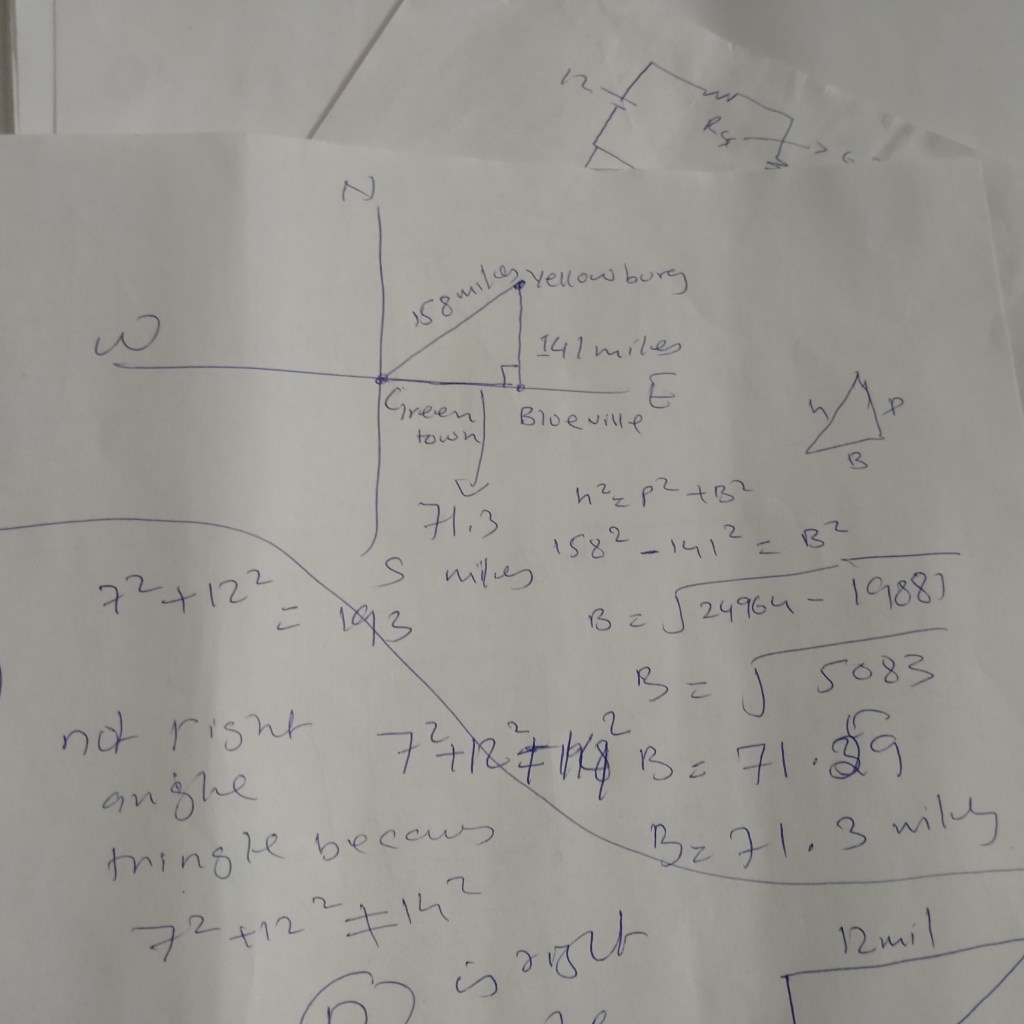 12
N
158 miles
Yellowburg
141 miles
W
E
Green
town
Blueville
h
P
B
71.3
miles
S
h² = P² + B²
158² - 141² = B²
B = √24964 - 19881
B = √5083
B = 71.29
B = 71.3 miles
7² + 12²
= 193
not right
7² + 12² ≠ 14²
angle
tringle becaus
7² + 12² ≠ 14²
is right
12 mil